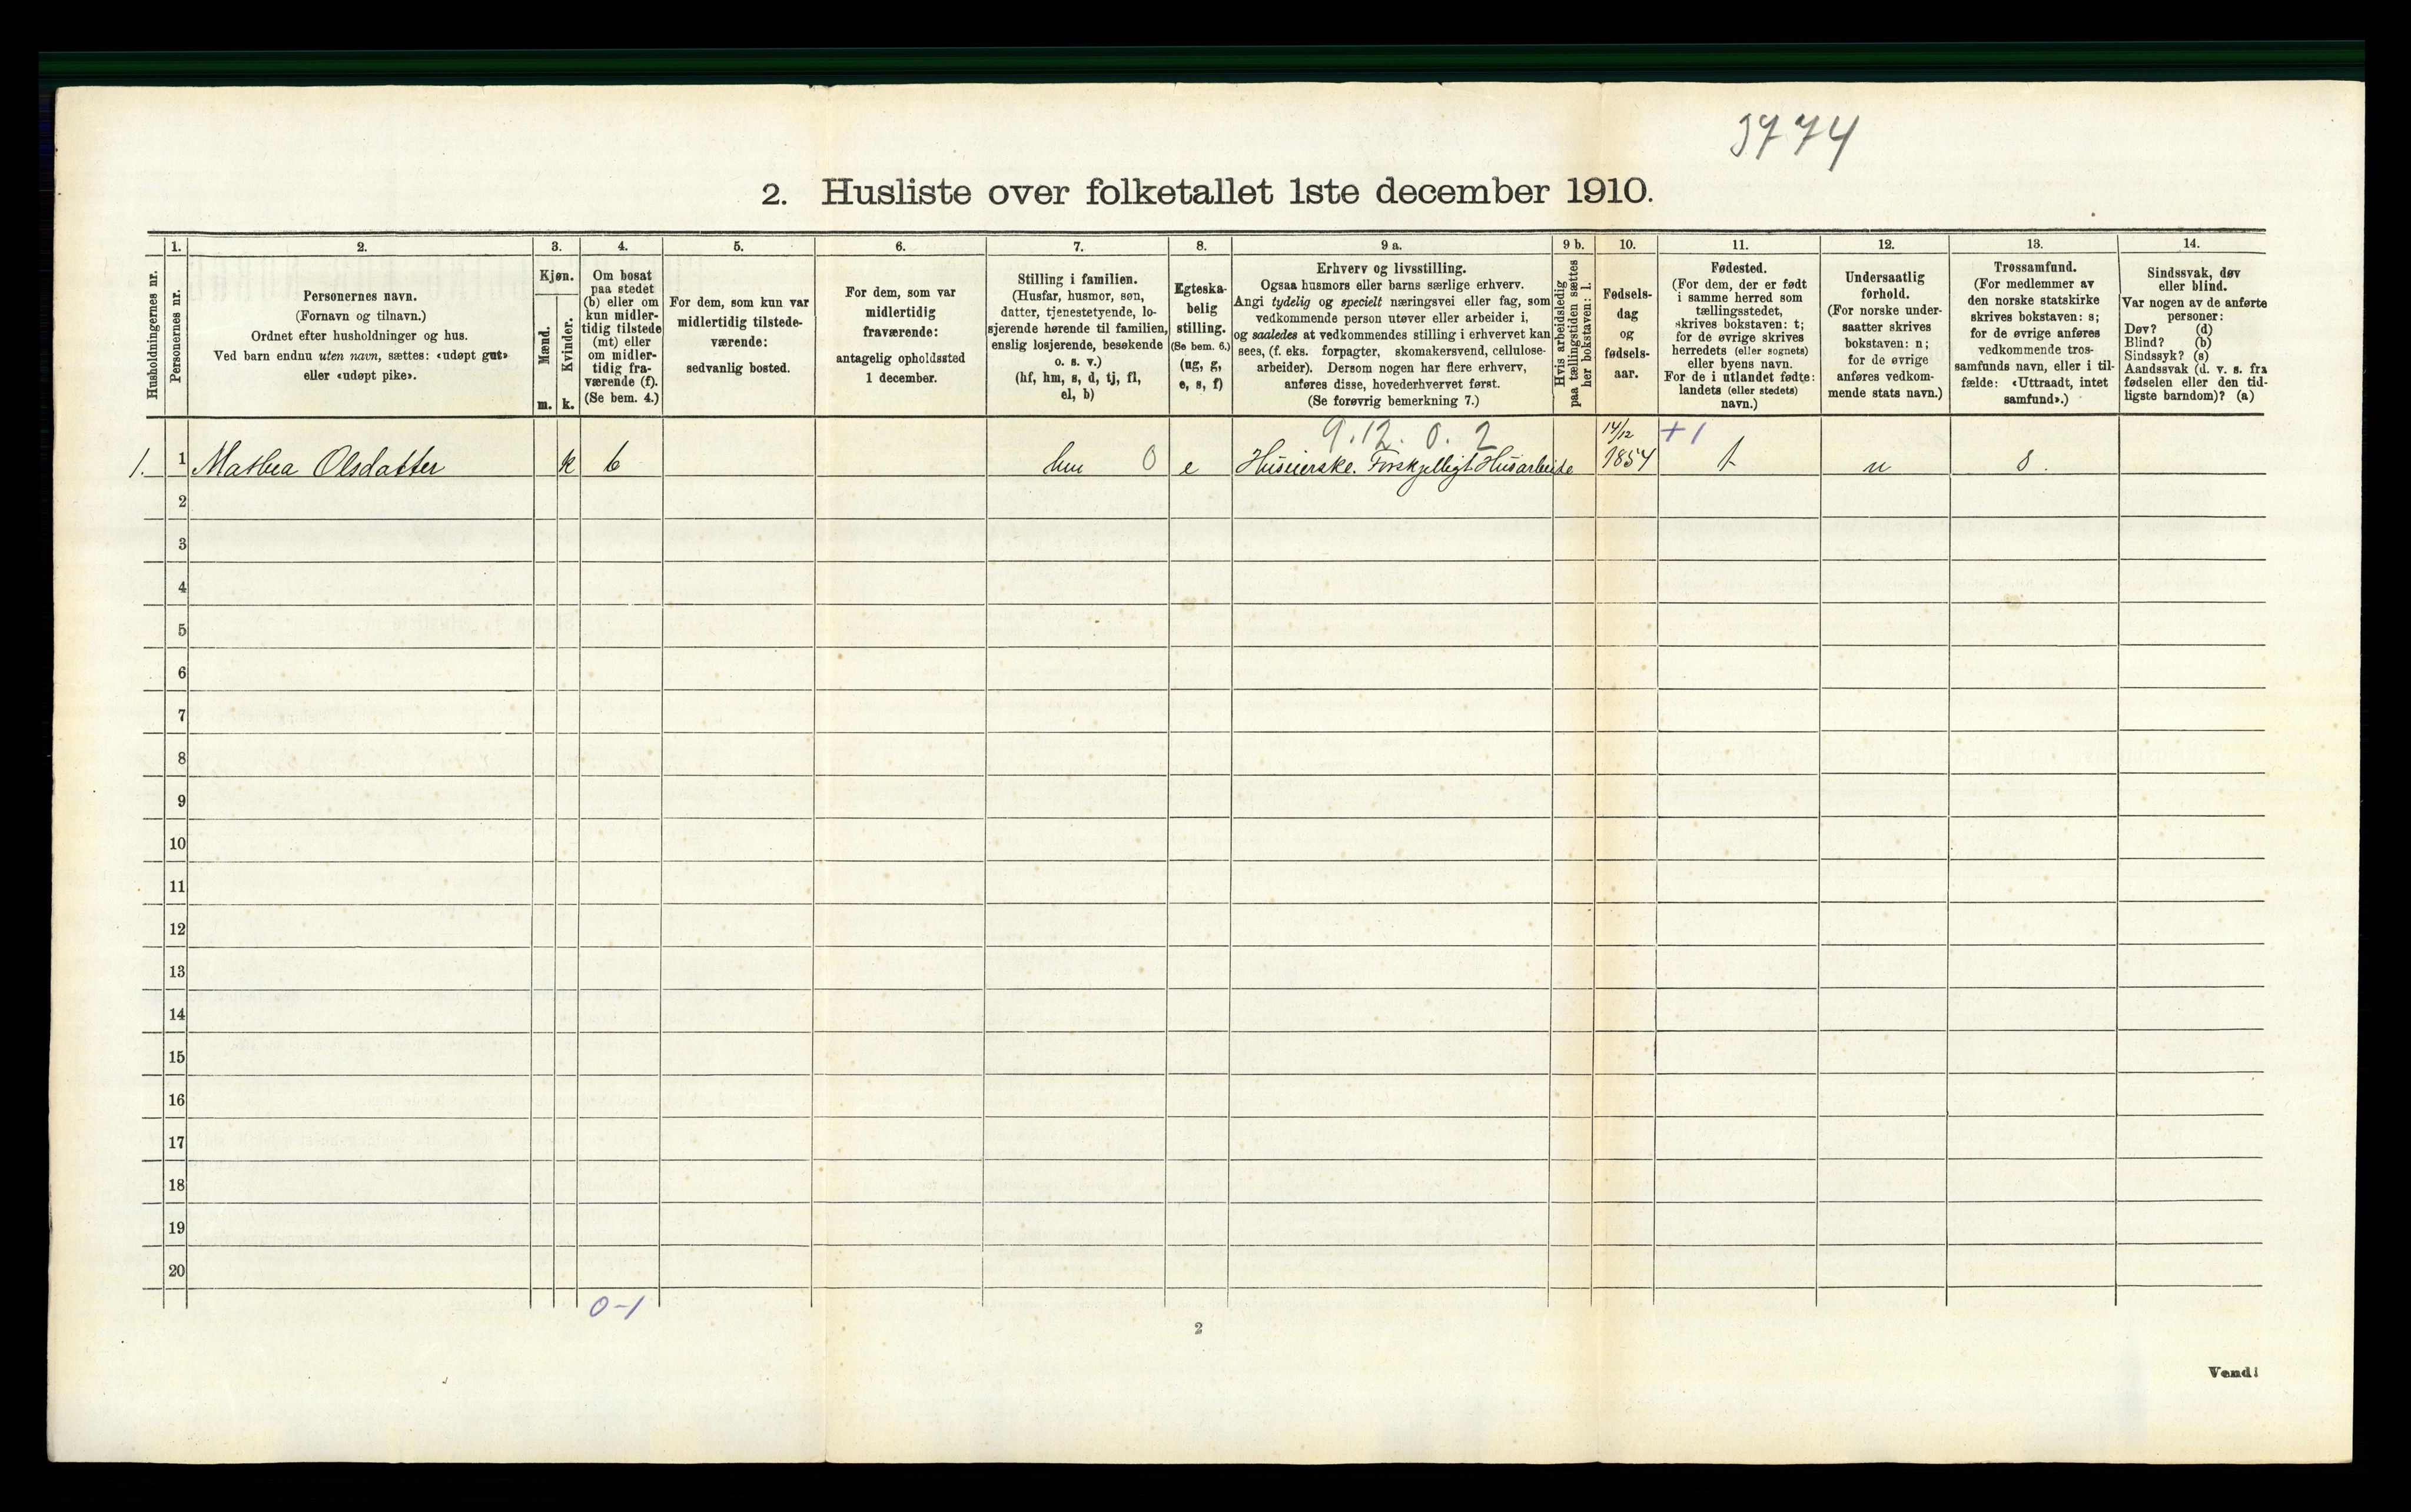 3774
2. Husliste over folketallet 1ste december 1910.
Husholdningernes nr.
1.
Personernes nr.
2.
Personernes navn.
(Fornavn og tilnavn.)
Ordnet efter husholdninger og hus.
Ved barn endnu uten navn, sættes: «udøpt gut»
eller «udøpt pike».
3.
Kjøn.
Mænd.
m.
Kvinder.
k.
4.
Om bosat
paa stedet
(b) eller om
kun midler-
tidig tilstede
(mt) eller
om midler-
tidig fra-
værende (f).
(Se bem. 4.)
5.
For dem, som kun var
midlertidig tilstede-
værende:
sedvanlig bosted.
6.
For dem, som var
midlertidig
fraværende:
antagelig opholdssted
1 december.
7.
Stilling i familien.
(Husfar, husmor, søn,
datter, tjenestetyende, lo-
sjerende hørende til familien,
enslig losjerende, besøkende
o. s. v.)
(hf, hm, s, d, tj, fl,
el, b)
8.
Egteska-
belig
stilling.
(Se bem. 6.)
(ug, g,
e, s, f)
9 a.
Erhverv og livsstilling.
Ogsaa husmors eller barns særlige erhverv.
Angi tydelig og specielt næringsvei eller fag, som
vedkommende person utøver eller arbeider i,
og saaledes at vedkommendes stilling i erhvervet kan
sees, (f. eks. forpagter, skomakersvend, cellulose-
arbeider). Dersom nogen har flere erhverv,
anføres disse, hovederhvervet først.
(Se forøvrig bemerkning 7.)
9 b.
Hvis arbeidsledig
paa tællingstiden sættes
her bokstaven: l.
10.
Fødsels-
dag
og
fødsels-
aar.
11.
Fødested.
(For dem, der er født
i samme herred som
tællingsstedet,
skrives bokstaven: t;
for de øvrige skrives
herredets (eller sognets)
eller byens navn.
For de i utlandet fødte:
landets (eller stedets)
navn.)
12.
Undersaatlig
forhold.
(For norske under-
saatter skrives
bokstaven: n;
for de øvrige
anføres vedkom-
mende stats navn.)
13.
Trossamfund.
(For medlemmer av
den norske statskirke
skrives bokstaven: s;
for de øvrige anføres
vedkommende tros-
samfunds navn, eller i til-
fælde: «Uttraadt, intet
samfund».)
14.
Sindssvak, døv
eller blind.
Var nogen av de anførte
personer:
Døv? (d)
Blind? (b)
Sindssyk? (s)
Aandssvak (d. v. s. fra
fødselen eller den tid-
ligste barndom)? (a)
9.12. 0. 2
14/12 +1
1. 1 Mathea Olsdatter k b hm 0 e Huseierske. Forskjelligt Husarbeide 1854 t n s.
2
3
4
5
6
7
8
9
10
11
12
13
14
15
16
17
18
19
20
0-1
2
Vend!